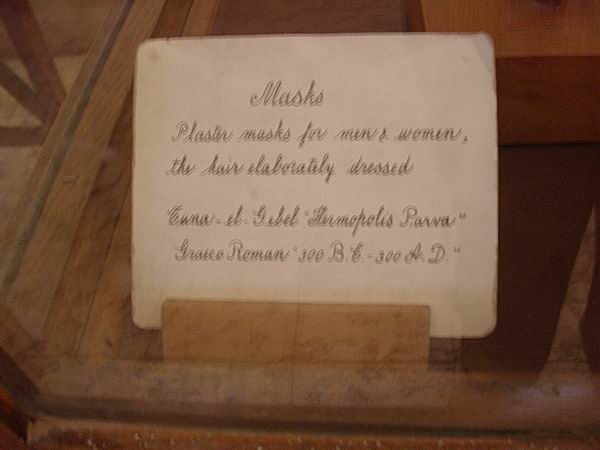 Masks
Plaster masks for men & women,
the hair elaborately dressed
Tuna-el-Gebel "Hermopolis Parva"
Graeco Roman "300 B.C.-300 A.D."